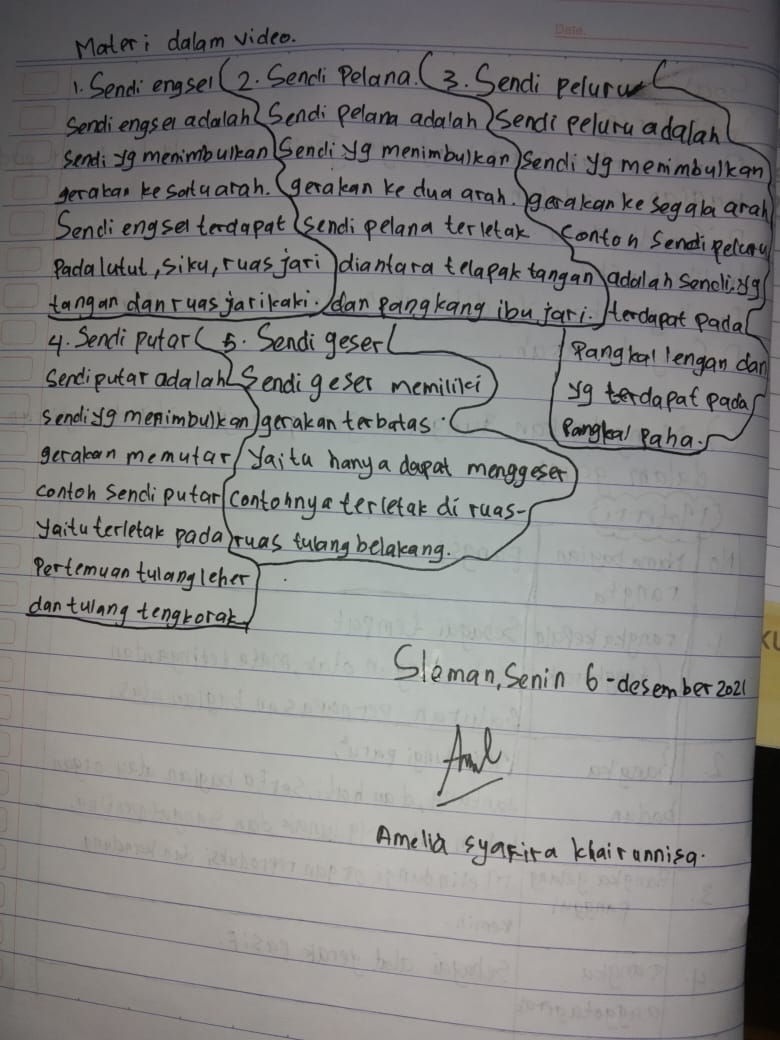 Date.
Materi dalam video.
1. Sendi engsel
Sendi engsel adalah
sendi yg menimbulkan
gerakan ke satu arah.
Sendi engsel terdapat
Pada lutut, siku, ruas jari
tangan dan ruas jari kaki.
2. Sendi Pelana.
Sendi pelana adalah
Sendi yg menimbulkan
gerakan ke dua arah.
sendi pelana terletak
diantara telapak tangan
dan pangkang ibu jari.
3. Sendi peluru
Sendi peluru adalah
sendi yg menimbulkan
gerakan ke segala arah
Contoh Sendi peluru
adalah sendi yg
terdapat pada
Pangkal lengan dan
yg terdapat pada
Pangkal paha.
4. Sendi putar
Sendi putar adalah
sendi yg menimbulkan
gerakan memutar
contoh sendi putar
yaitu terletak pada
Pertemuan tulang leher
dan tulang tengkorak.
5. Sendi geser
Sendi geser memiliki
gerakan terbatas.
Yaitu hanya dapat menggeser
Contohnya terletak di ruas-
ruas tulang belakang.
Sleman, Senin 6-desember 2021
Aml
Amelia syafira khairunnisa.